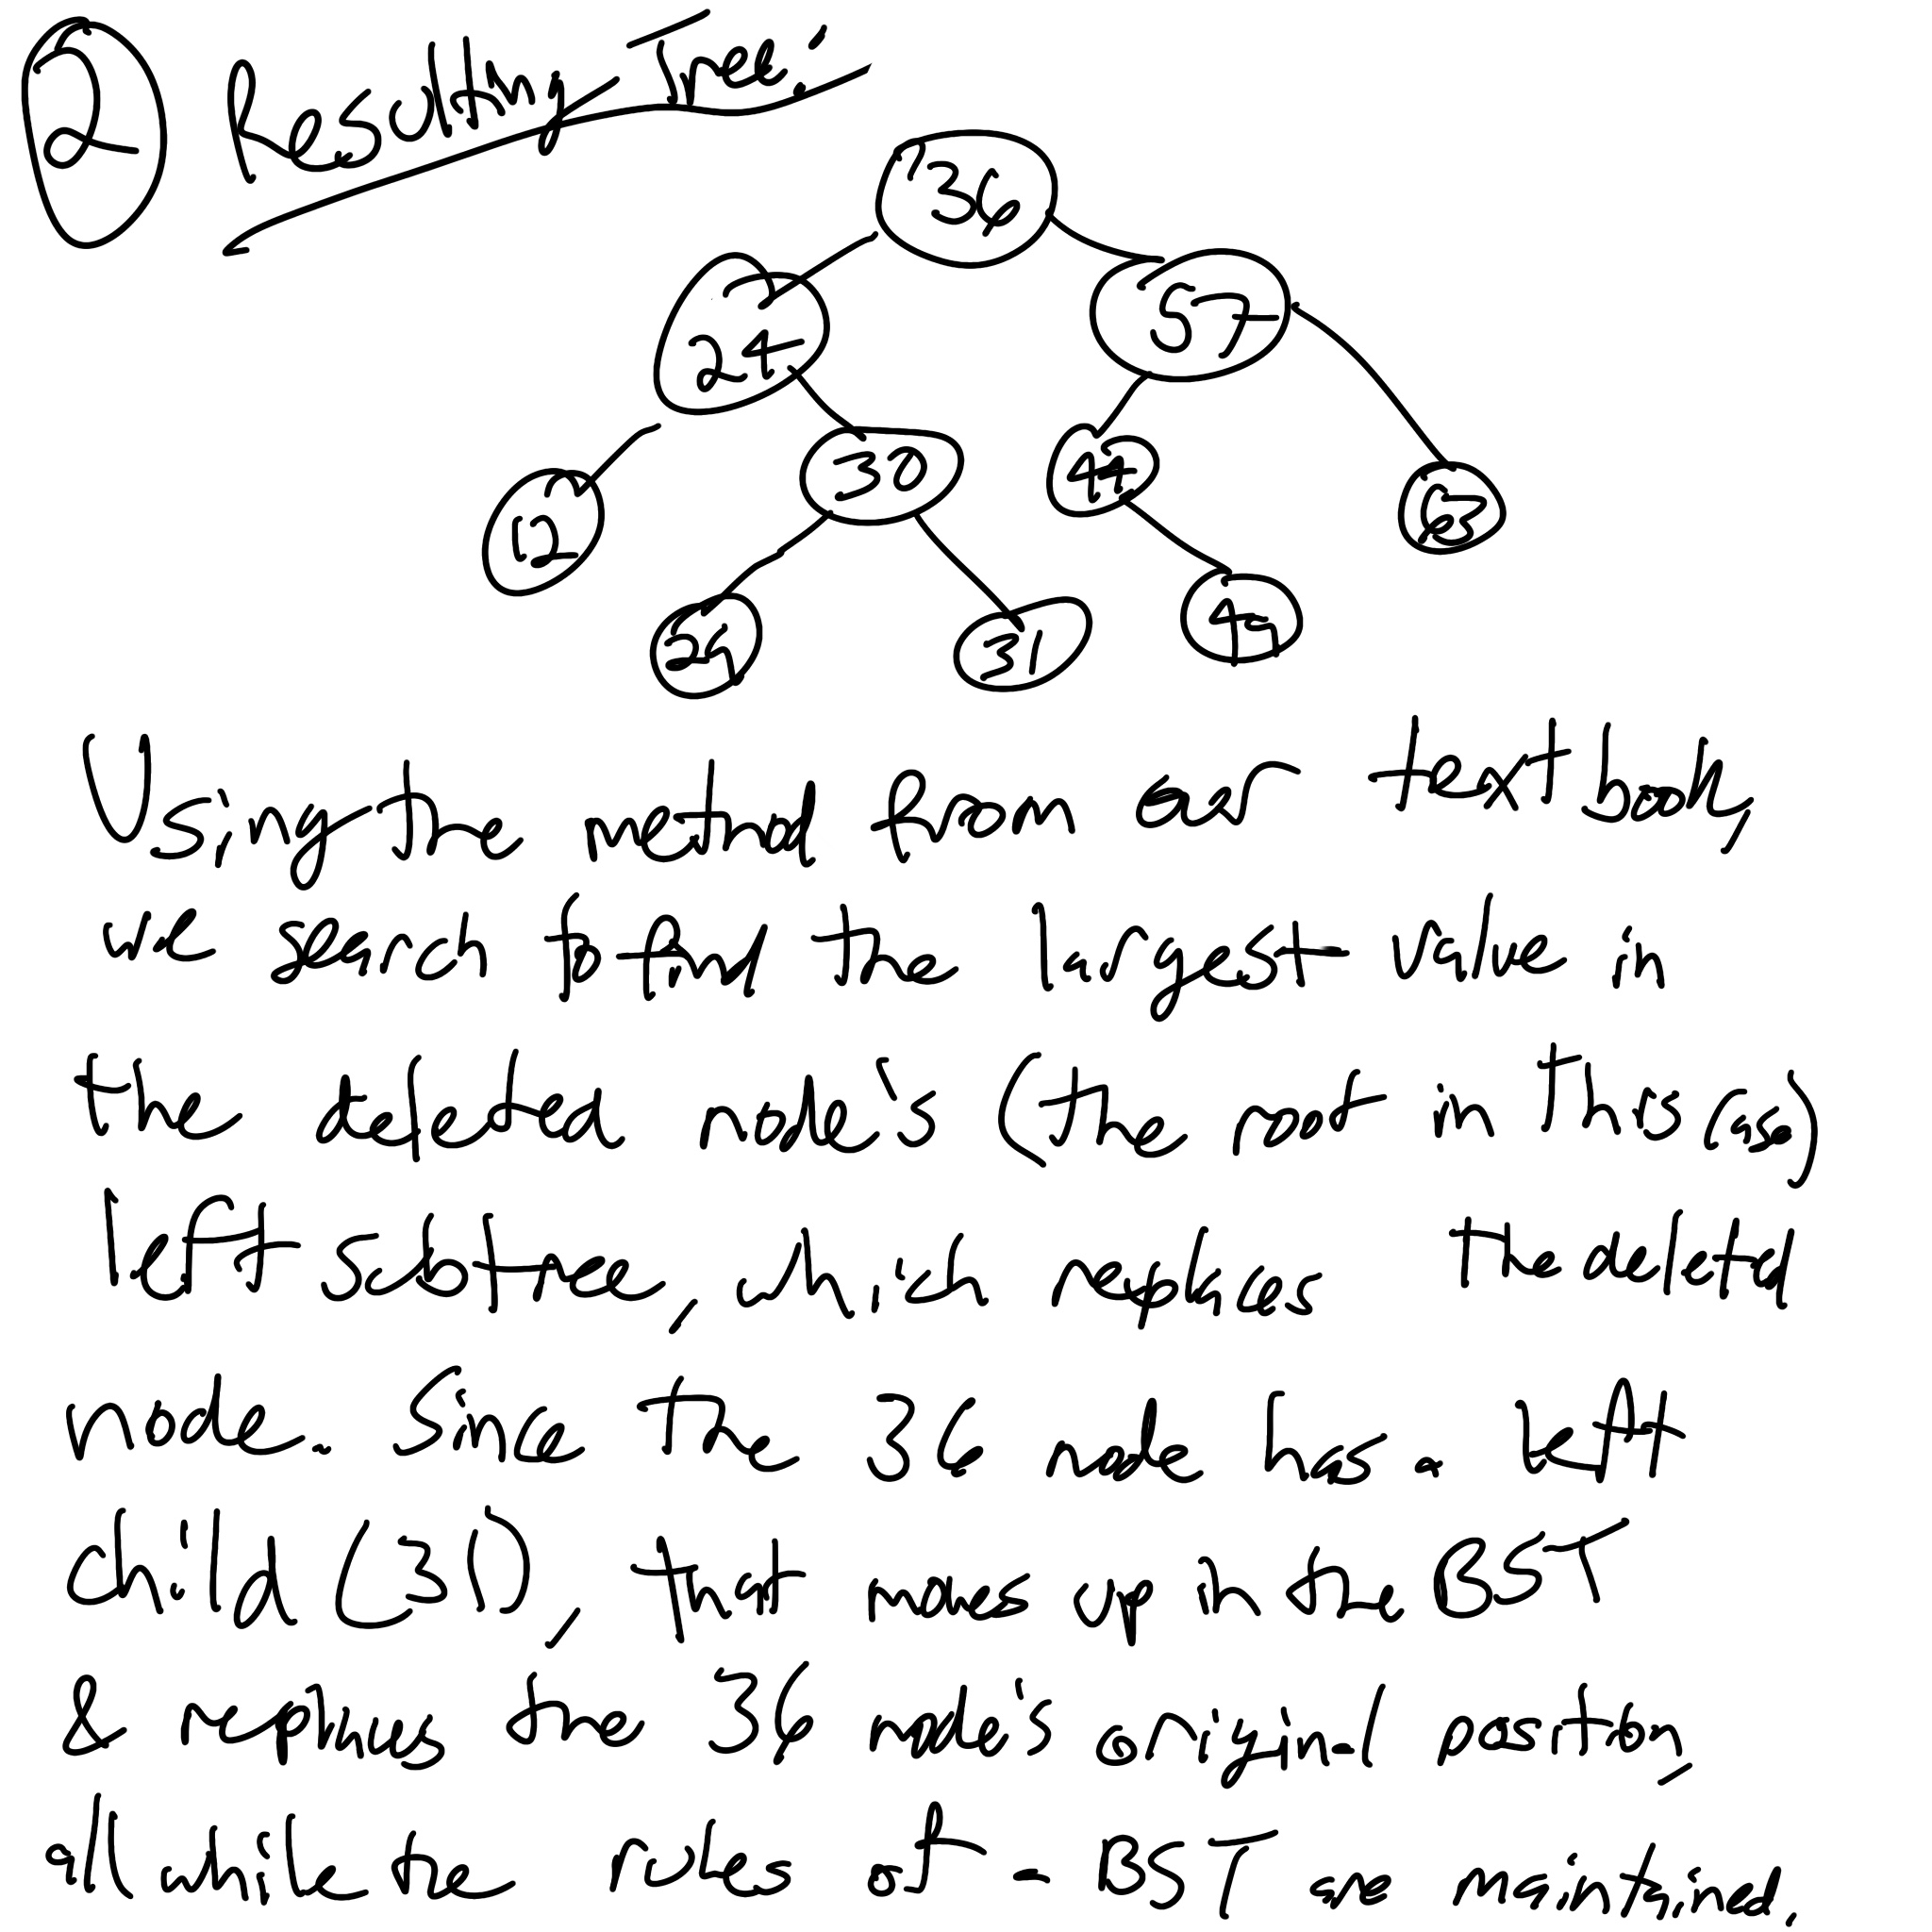 2 Resulting Tree:
36
24 57
12 30 44 65
26 31 49
Using the method from our textbook,
we search to find the largest value in
the deleted node's (the root in this case)
left subtree, which replaces the deleted
node. Since the 36 node has a left
child (31), that moves up in the BST
& replaces the 36 node's original position,
all while the rules of a BST are maintained.